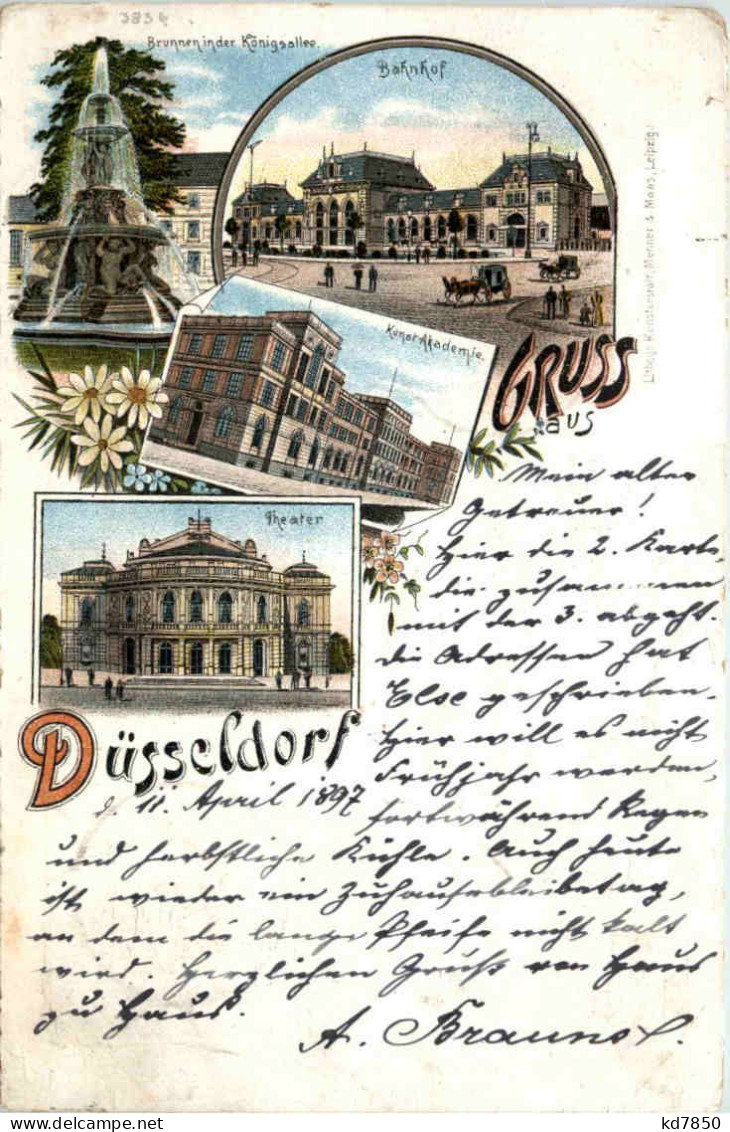 3834
Brunnen in der Königsallee.
Bahnhof
Kunst-Akademie.
Lith. u. Kunstanstalt, Menner & Maas, Leipzig.
GRUSS
aus
Theater
Düsseldorf
d. 11. April 1897
Mein alter
Getreuer!
Hier die 2. Karte,
die zusammen
mit der 3. abgeht.
die Adressen hat
Else geschrieben.
Hier will es nicht
Frühjahr werden,
fortwährend Regen
und herbstliche Kühle. Auch heute
ist wieder ein Zuhausebleibetag,
an dem die lange Pfeife nicht kalt
wird. Herzlichen Gruß von Haus
zu Haus.
A. Brauns
kd7850